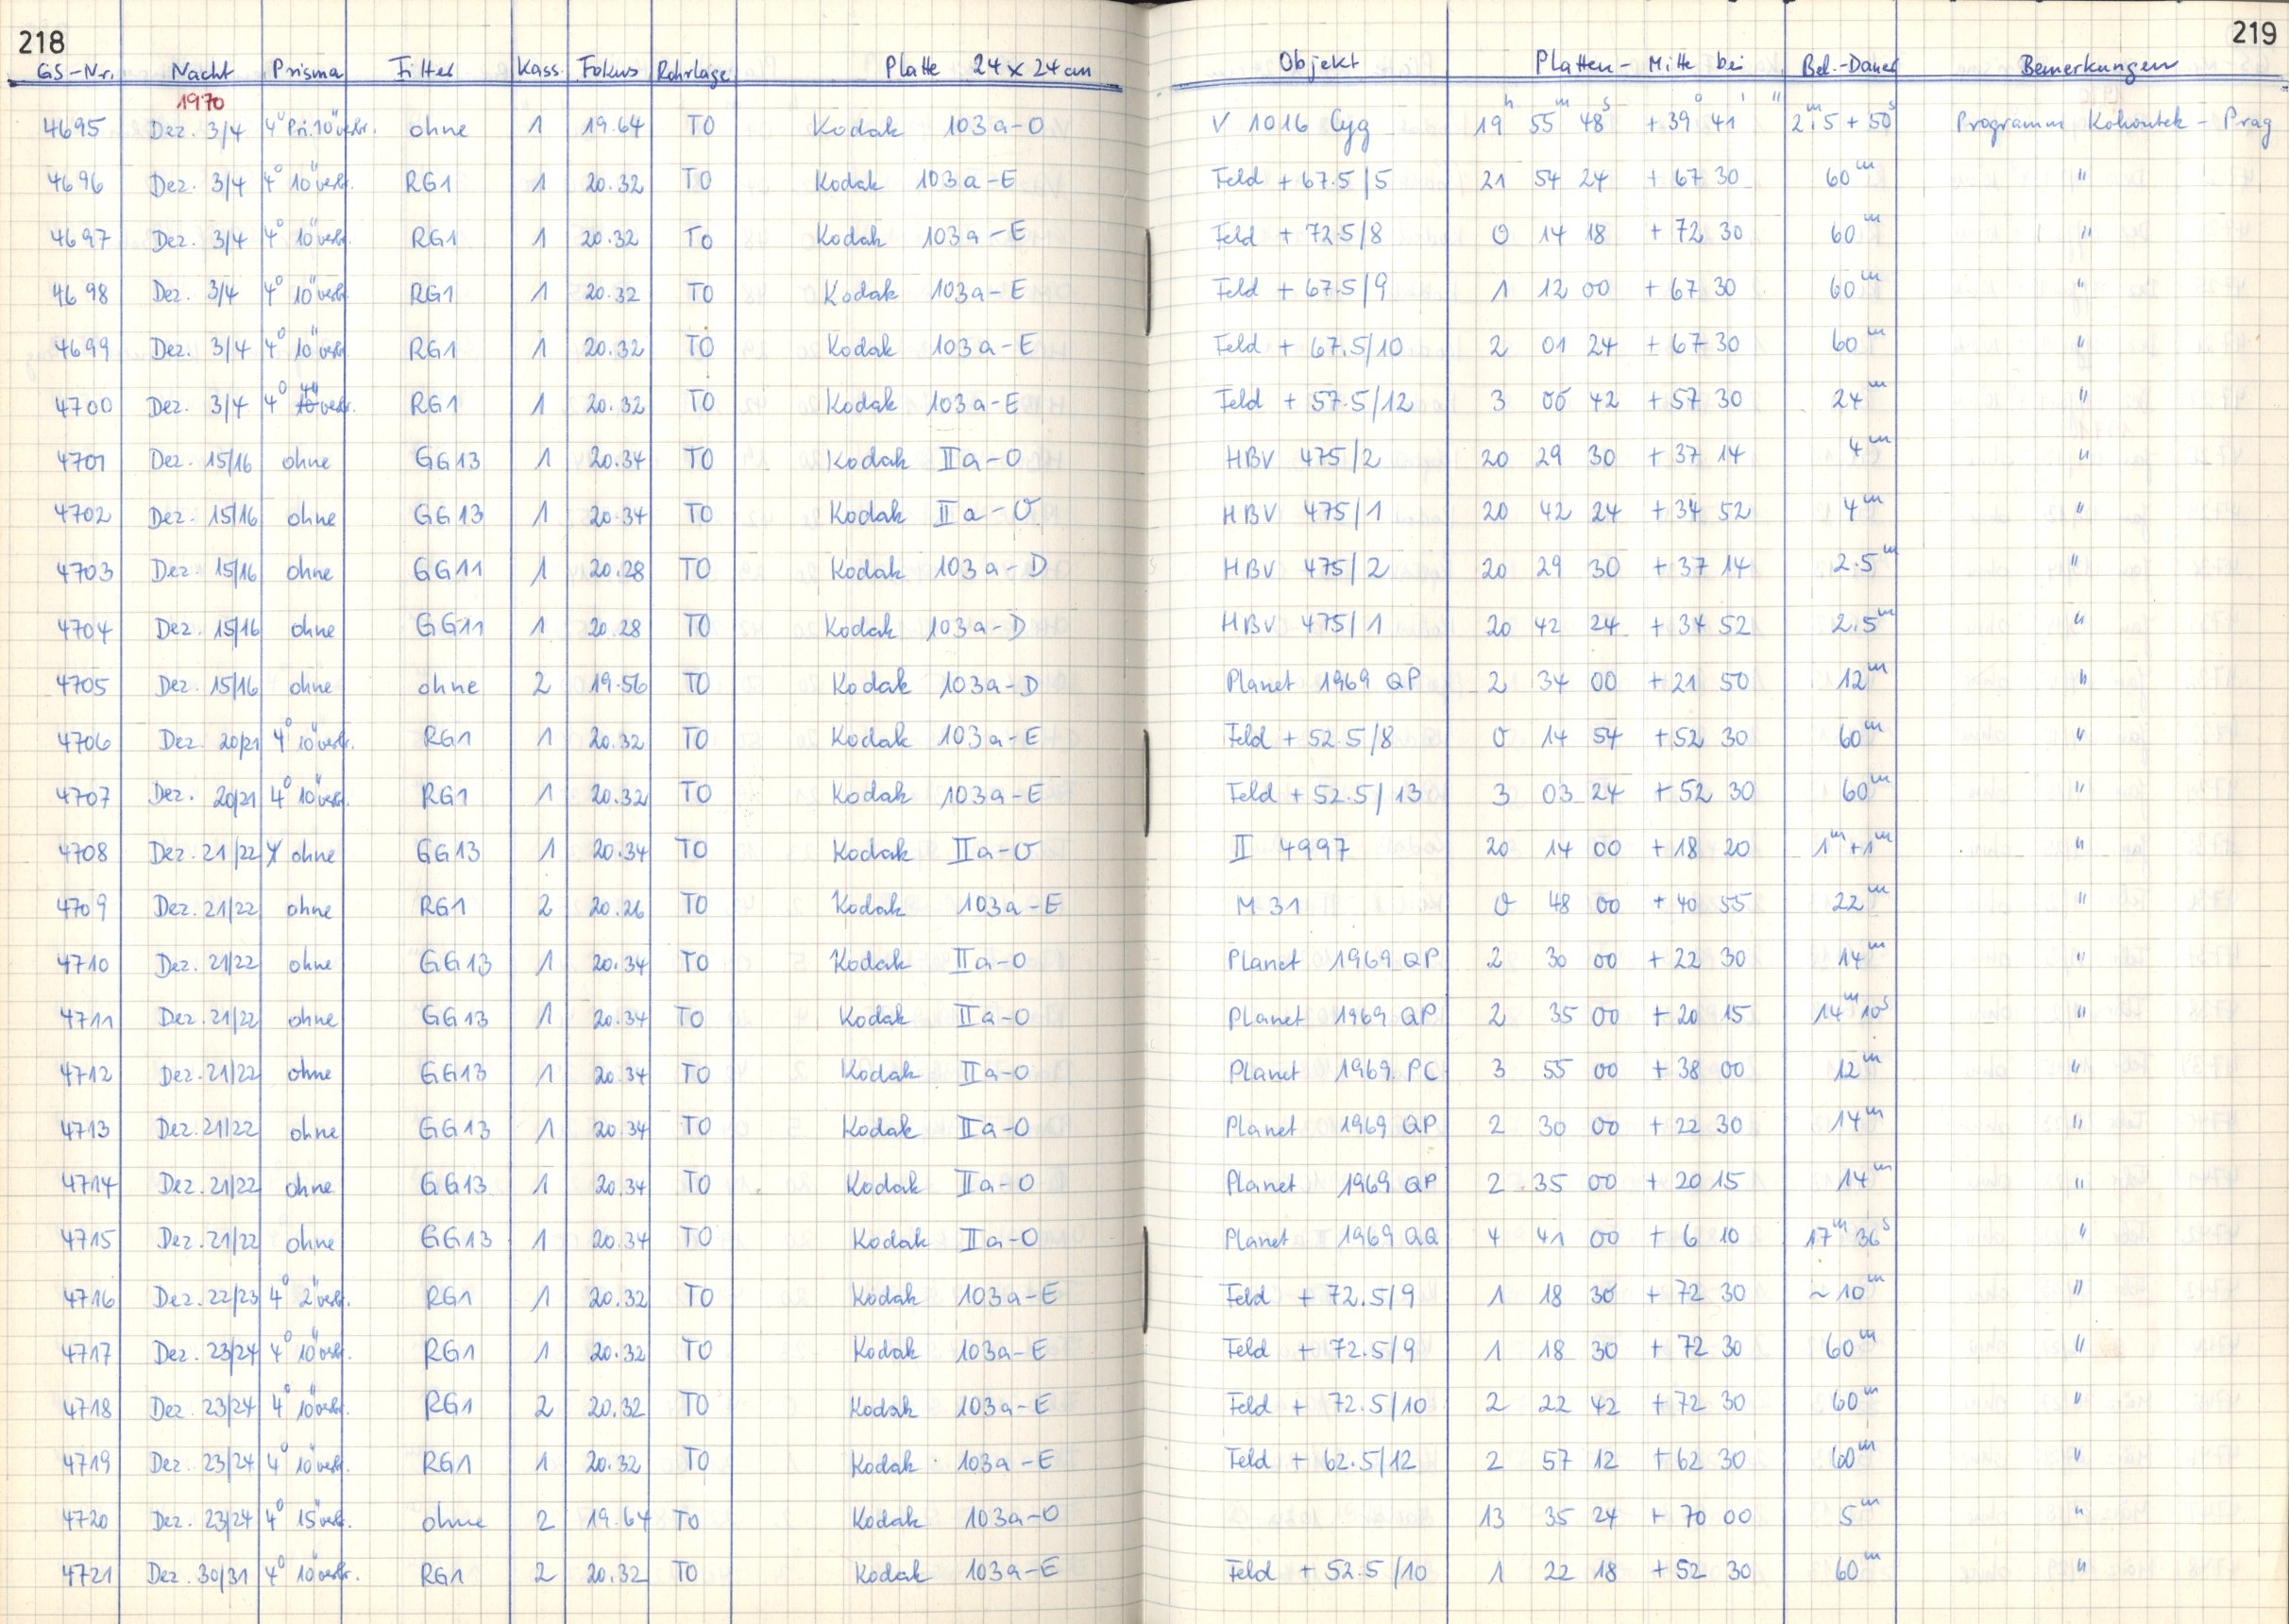 218 219
GS-Nr. Nacht Prisma Filter Kass. Fokus Rohrlage Platte 24 x 24 cm Objekt Platten - Mitte bei Bel.-Dauer Bemerkungen
1970
4695 Dez. 3/4 4° Pri. 10" verbr. ohne 1 19.64 TO Kodak 103a-O V 1016 Cyg 19h 55m 48s +39° 41' " 2m.5 + 50s Programm Kohoutek - Prag
4696 Dez. 3/4 4° 10" verbr. RG1 1 20.32 TO Kodak 103a-E Feld + 67.5/5 21 54 24 + 67 30 60m "
4697 Dez. 3/4 4° 10" verbr. RG1 1 20.32 TO Kodak 103a-E Feld + 72.5/8 0 14 18 + 72 30 60m "
4698 Dez. 3/4 4° 10" verbr. RG1 1 20.32 TO Kodak 103a-E Feld + 67.5/9 1 12 00 + 67 30 60m "
4699 Dez. 3/4 4° 10" verbr. RG1 1 20.32 TO Kodak 103a-E Feld + 67.5/10 2 01 24 + 67 30 60m "
4700 Dez. 3/4 4° verbr. RG1 1 20.32 TO Kodak 103a-E Feld + 57.5/12 3 00 42 + 57 30 24m "
4701 Dez. 15/16 ohne GG13 1 20.34 TO Kodak IIa-O HBV 475/2 20 29 30 + 37 14 4m "
4702 Dez. 15/16 ohne GG13 1 20.34 TO Kodak IIa-O HBV 475/1 20 42 24 + 34 52 4m "
4703 Dez. 15/16 ohne GG11 1 20.28 TO Kodak 103a-D HBV 475/2 20 29 30 + 37 14 2.5m "
4704 Dez. 15/16 ohne GG11 1 20.28 TO Kodak 103a-D HBV 475/1 20 42 24 + 34 52 2.5m "
4705 Dez. 15/16 ohne ohne 2 19.56 TO Kodak 103a-D Planet 1969 QP 2 34 00 + 21 50 12m "
4706 Dez. 20/21 4° 10" verbr. RG1 1 20.32 TO Kodak 103a-E Feld + 52.5/8 0 14 54 + 52 30 60m "
4707 Dez. 20/21 4° 10" verbr. RG1 1 20.32 TO Kodak 103a-E Feld + 52.5/13 3 03 24 + 52 30 60m "
4708 Dez. 21/22 ohne GG13 1 20.34 TO Kodak IIa-O II 4997 20 14 00 + 18 20 1m+1m "
4709 Dez. 21/22 ohne RG1 2 20.26 TO Kodak 103a-E M 31 0 48 00 + 40 55 22m "
4710 Dez. 21/22 ohne GG13 1 20.34 TO Kodak IIa-O Planet 1969 QP 2 30 00 + 22 30 14m "
4711 Dez. 21/22 ohne GG13 1 20.34 TO Kodak IIa-O Planet 1969 QP 2 35 00 + 20 15 14m 10s "
4712 Dez. 21/22 ohne GG13 1 20.34 TO Kodak IIa-O Planet 1969 PC 3 55 00 + 38 00 12m "
4713 Dez. 21/22 ohne GG13 1 20.34 TO Kodak IIa-O Planet 1969 QP 2 30 00 + 22 30 14m "
4714 Dez. 21/22 ohne GG13 1 20.34 TO Kodak IIa-O Planet 1969 QP 2 35 00 + 20 15 14m "
4715 Dez. 21/22 ohne GG13 1 20.34 TO Kodak IIa-O Planet 1969 QQ 4 41 00 + 6 10 17m 36s "
4716 Dez. 22/23 4° 2" verbr. RG1 1 20.32 TO Kodak 103a-E Feld + 72.5/9 1 18 30 + 72 30 ~10m "
4717 Dez. 23/24 4° 10" verbr. RG1 1 20.32 TO Kodak 103a-E Feld + 72.5/9 1 18 30 + 72 30 60m "
4718 Dez. 23/24 4° 10" verbr. RG1 2 20.32 TO Kodak 103a-E Feld + 72.5/10 2 22 42 + 72 30 60m "
4719 Dez. 23/24 4° 10" verbr. RG1 1 20.32 TO Kodak 103a-E Feld + 62.5/12 2 57 12 + 62 30 60m "
4720 Dez. 23/24 4° 15" verbr. ohne 2 19.64 TO Kodak 103a-O 13 35 24 + 70 00 5m "
4721 Dez. 30/31 4° 10" verbr. RG1 2 20.32 TO Kodak 103a-E Feld + 52.5/10 1 22 18 + 52 30 60m "